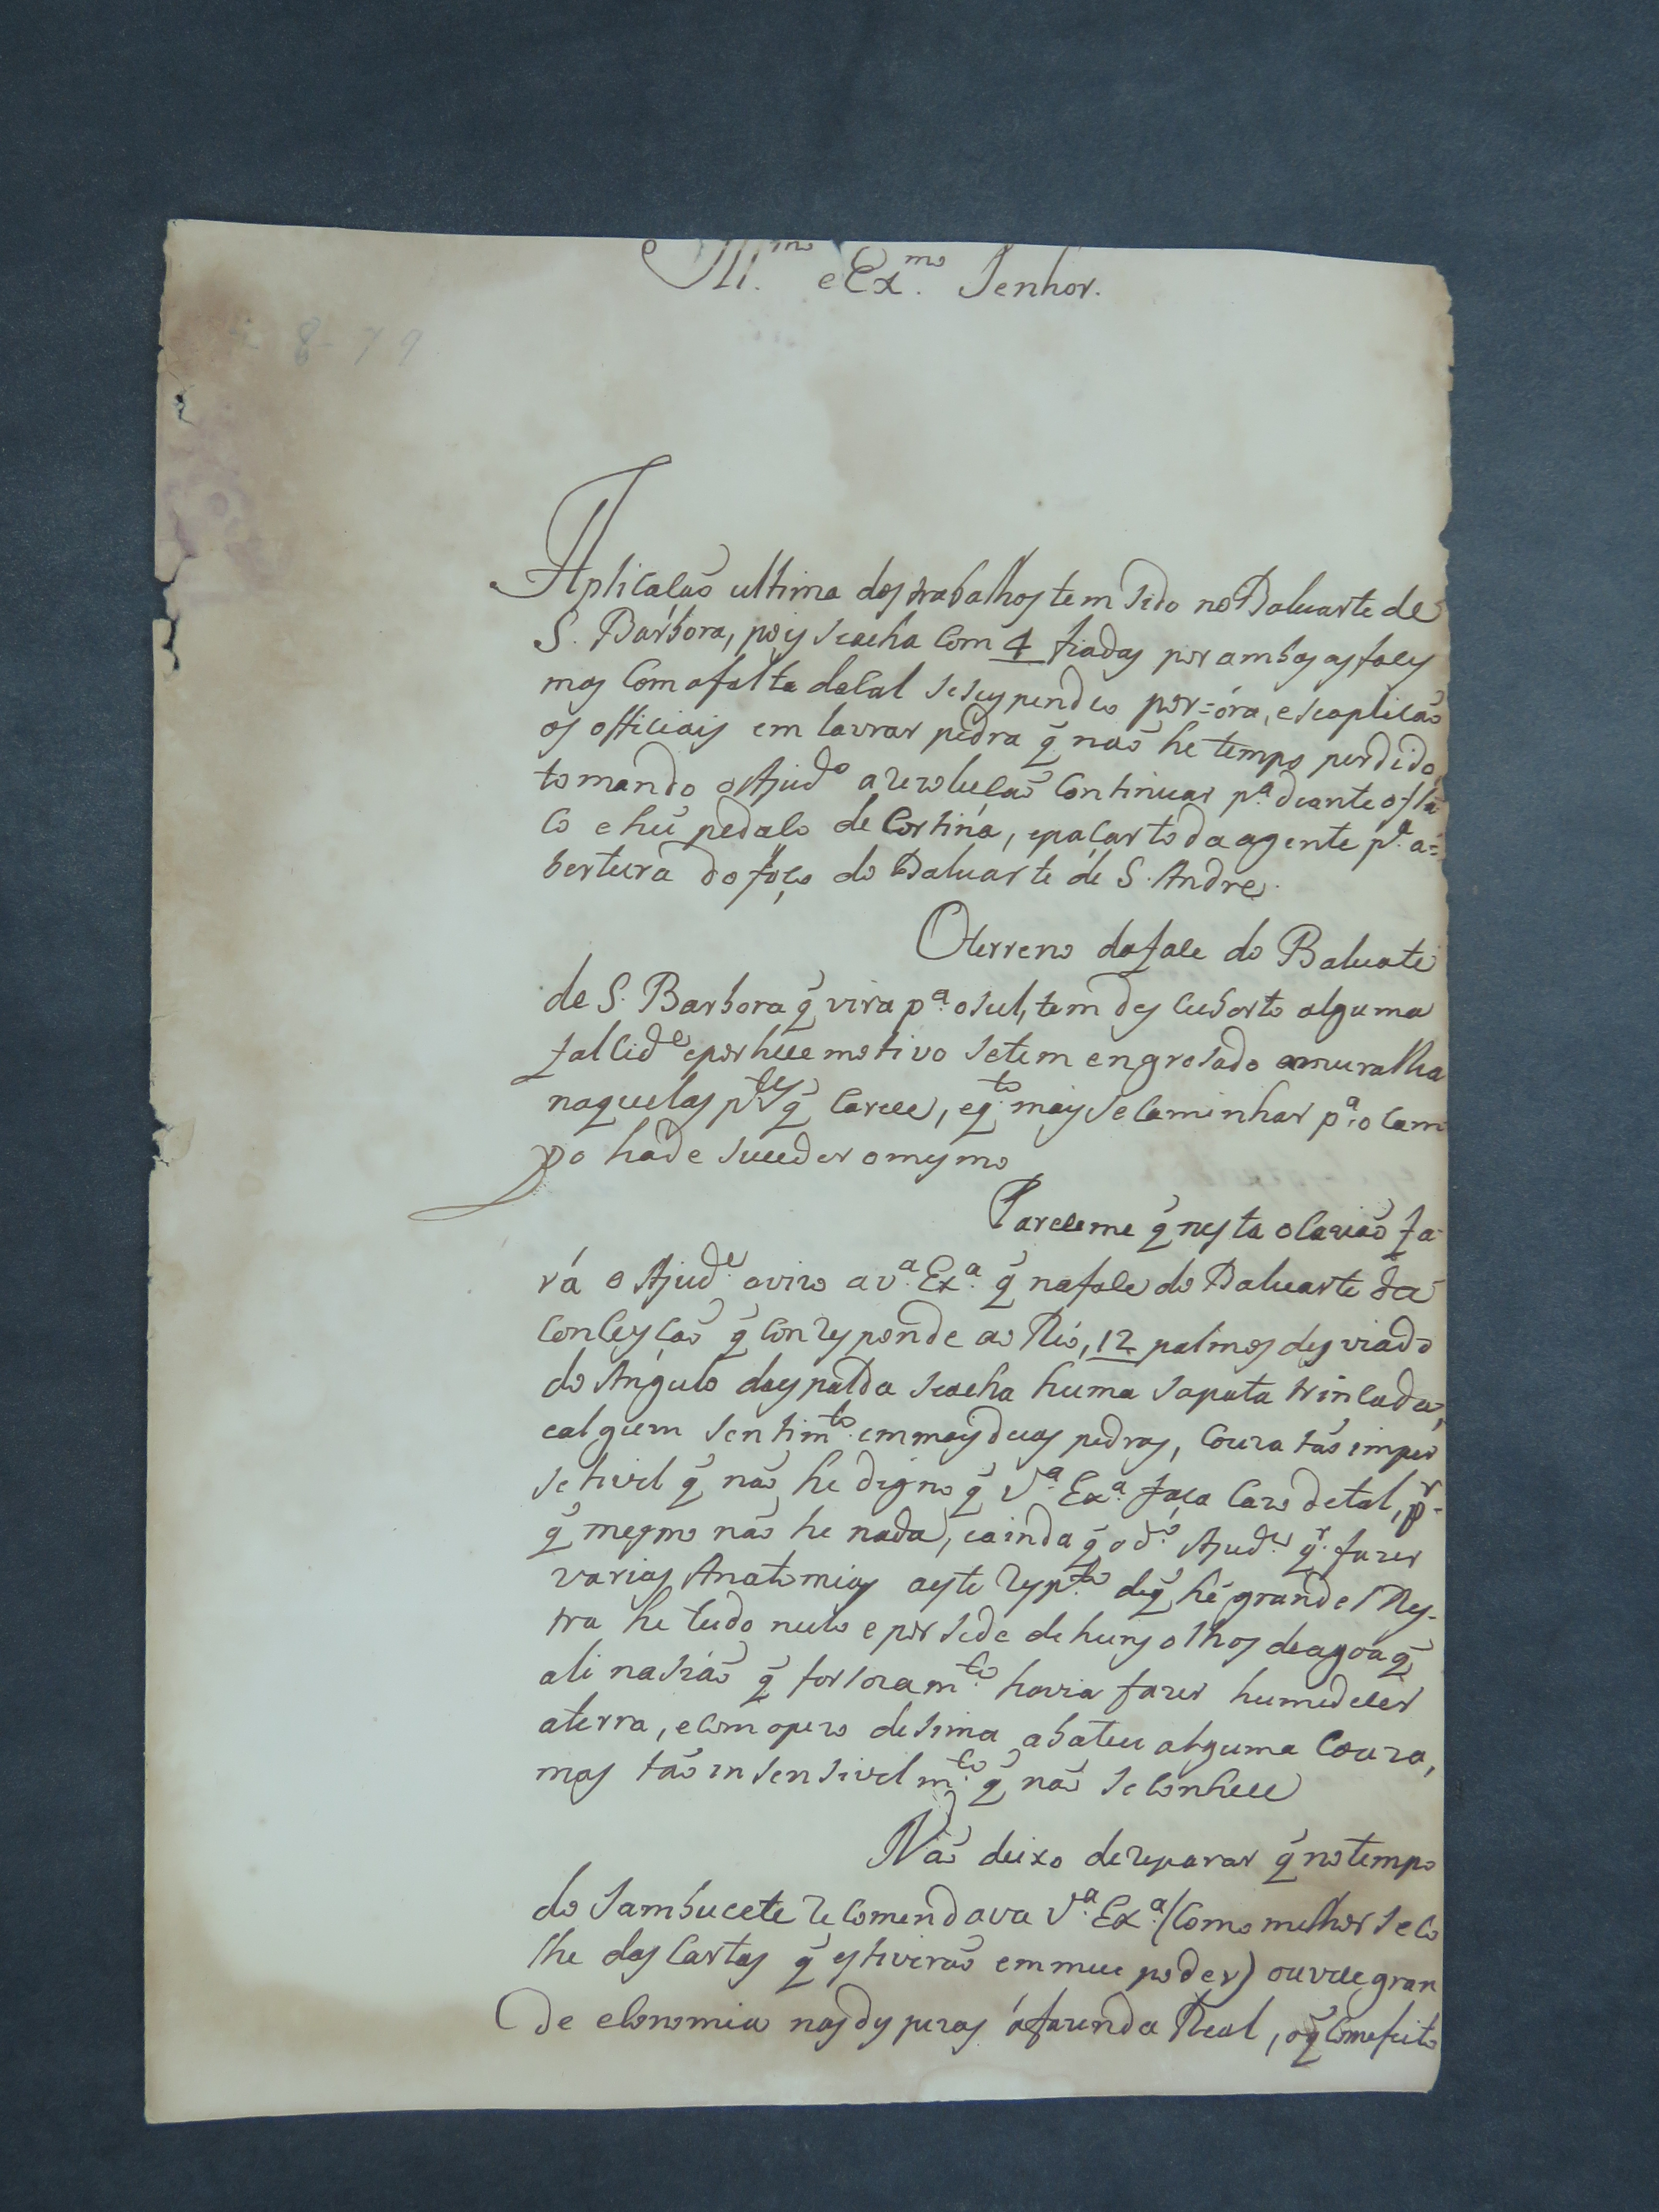 Ill.mo e Ex.mo Senhor.
8-79
Aplicasaõ ultima dos trabalhos tem sido no Baluarte de
S. Barbora, pois seacha com 4 fiadas por ambas as faces
mas com afalta dacal sesuspendeo por=óra, eseaplicaõ
os officiais em lavrar pedra q̃ naõ he tempo perdido,
tomando o Ajud.e arezoluçaõ continuar p.a diante o fla
co e hũ pedaço de Cortina, epaçar toda agente p.a a=
bertura do foço do Baluarte de S. Andre.
Oterreno daface do Baluate
de S. Barbora q̃ vira p.a osul, tem descuberto alguma
falcid.e epor hue motivo setem engrosado amuralha
naquelas p.tes q̃ carece, eq.to mais se caminhar p.a o cam
po hade suceder omesmo
Pareceme q̃ nesta ocaziaõ fa-
rá o Ajud.e avizo a v.a Ex.a q̃ naface do Baluarte da
Conceysaõ q̃ conresponde ao Rio, 12 palmos desviado
do Angulo daespalda seacha huma sapata trincada,
ealgum sentim.to emmais duas pedras, couza taõ imper
setivel q̃ naõ he digno q̃ V.a Ex.a faça cazo detal, p.r
q̃ mesmo naõ he nada, eainda q̃ o d.o Ajud.e q.r fazer
varias Anatomias aeste resp.to deq̃ hé grande Mes-
tra he tudo nulo e por sede de huns olhos deagoa q̃
ali nasiáõ q̃ forsozam.te havia fazer humedecer
aterra, ecom opezo desima abateu alguma couza,
mas taõ insensivelm.te q̃ naõ seconhece
Naõ deixo dereparar q̃ notempo
do Sambucete recomendava V.a Ex.a (como melhor seco
lhe das Cartas q̃ estiveraõ emmeu poder) ouvece gran
de economia nas dispezas áfazenda Real, oq̃ comefeito